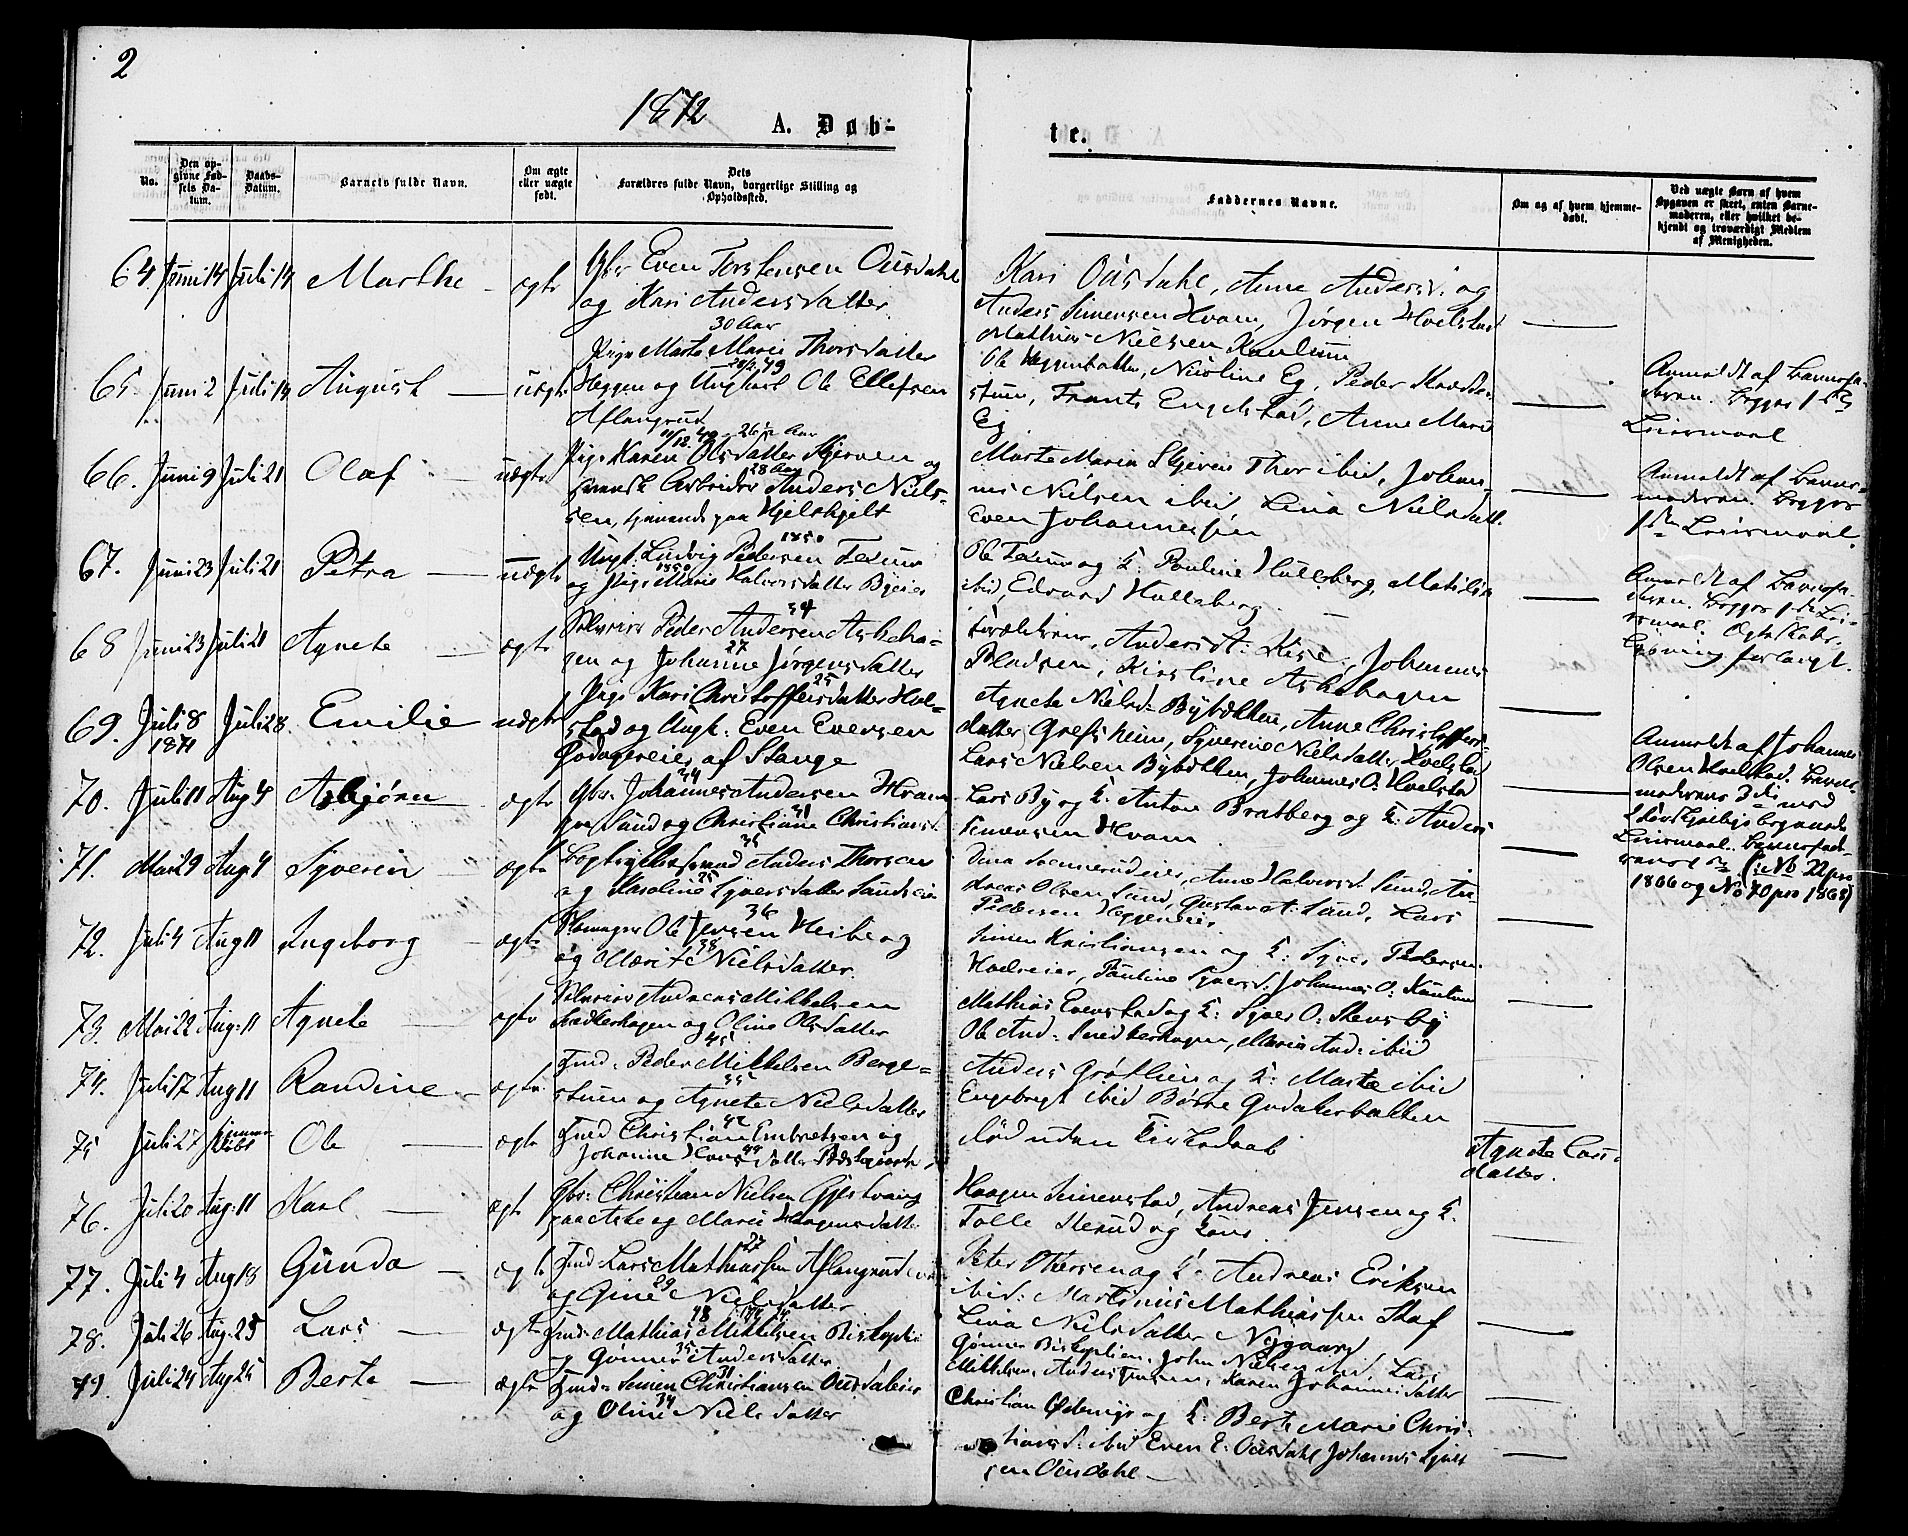 2
1872
A. Døb-
te.
No.
Den op-
givne Fød-
sels Da-
tum.
Daabs-
Datum.
Barnets fulde Navn.
Om ægte
eller uægte
født.
Dets
Forældres fulde Navn, borgerlige Stilling og
Opholdssted.
Faddernes Navne.
Om og af hvem hjemme-
døbt.
Ved uægte Børn af hvem
Opgaven er skeet, enten Barne-
moderen, eller hvilket be-
kjendt og troværdigt Medlem
af Menigheden.
64. Juni 14 Juli 14 Marthe - ægte Gbr Even Torstensen Ousdahl
og Kari Andersdatter
Kari Ousdahl, Anne Andersd: og
Anders Simensen Hvam, Jørgen Hoelstad
Mathias Nielsen Kaulum
30 Aar
65. Juni 2 Juli 14 August — uægte Pige Marte Marie Thorsdatter
Heggen og Ungkarl Ole Ellefsen
Aflangrud
Ole Heggenbakken, Nicoline Eg, Peder
Frants Engelstad, Anne Marie
Eg
Anmeldt af Barnefa-
deren. Begges 1ste
Leiermaal
66. Juni 9 Juli 21 Olaf — uægte Pige Karen Olsdatter Skjerven og
28 Aar
svensk Arbeider Anders Niels-
sen, tjenende paa Hjelskjelt
Marte Maren Skjerven Thor ibid, Johan-
nes Nielsen ibid, Lina Nielsdatt.
Even Johannessen
Anmeldt af Barne-
moderen. Begges
1ste Leiermaal.
67. Juni 23 Juli 21 Petra — uægte Ungk. Ludvig Pedersen Texum
1850
og Pige Marie Halvorsdatter Byeier
1850
Ole Texum og K. Pauline Hulleberg, Mathilde
ibid, Edvard Hulleberg.
Anmeldt af Barnefa-
deren. Begges 1ste Lei-
ermaal. Ægteskabs-
forlangt.
68 Juni 23 Juli 21 Agnete — ægte Selveier Peder Andersen Askeha-
34
gen og Johanne Jørgensdatter
27
Forældrene, Anders A: Kise, Johannes
Pladsen, Kirstine Askehagen
69. Juli 8 Juli 28. Emilie — uægte Pige Kari Christoffersdatter Hoel-
1871
25
stad og Ungk: Even Evensen
af Stange
Agnete Nielsd: Bybækken, Anne Christoffers-
datter Grefsheim, Syverine Nielsdatter Hoelstad
Lars Nielsen Bybækken, Johannes O: Hoelstad
Anmeldt af Johannes
Olsen Hoelstad. Barne-
moderens 3die med
Leiermaal. Barnefad-
erens 1ste (: No 22 pro
1866 og No 70 pro 1868)
70. Juli 11 Aug 4 Asbjørn — ægte Gbr: Johannes Andersen Hvam
44
paa Sund og Christiane Christiansd.
41
Lars By og K: Anton Bratberg og K: Anders
Simensen Hvam
71. Mai 29 Aug 4 Syverin — ægte Anders Thorsen
35
og Karoline Syversdatter Sundseie
25
Anne Halvorsd. Sund, An-
dreas Olsen Sund, Gustav A: Sund, Lars
Pedersen Heggeneie
72. Juli 4 Aug 11 Ingeborg — ægte Skomager Ole Jensen Hesberg
36
og Marite Nielsdatter
38
Simen Kristiansen og K: Syver Pedersen
Hoelseier, Pauline Syversd. Johannes O: Kaulum
73. Mai 22 Aug: 11 Agnete — ægte Selveier Andreas Mikkelsen
Snedkerhagen og Oline Olsdatter
Mathias Evenstad og K: Syver O: Stensby
Ole And: Snedkerhagen, Maria And: ibid
74. Juli 17 Aug 11 Randine — ægte Ind: Peder Mikkelsen Berge-
45
stuen og Agnete Nielsdatter
35
Anders Grøtlien og K: Marte ibid
Engebregt ibid Børre Gudakerbakken
75 Juli 27 hjemme-
døbt Ole — ægte Ind Christian Embretsen og
42
Johanne Larsdatter
44
død uden Kirkedaab
Agnete Lars-
datter.
76. Juli 20 Aug: 11 Karl — ægte Gbr: Christian Nielsen Gjestvang
paa Aske og Marie Haagensdatter
Haagen Simenstad, Andreas Jensen og K.
Tolle Sterud og Kone.
77. Juli 4 Aug 18 Gunda — ægte Ind Lars Mathiassen Aflangrud
27
og Gine Nielsdatter
29
Peter Thersen og K: Andreas Eriksen
ibid: Martinus Mathiassen Skaf
Lina Nielsdatter Nygaard
78. Juli 26 Aug. 25 Lars — ægte Ind: Mathias Mikkelsen Biskoplie
48
og Gønner Andersdatter
35
Gønner Biskoplien, John Nielsen ibid, Lars
Mikkelsen, Anders Jensen, Karen Johannesdatter
79. Juli 24 Aug 25 Berte — ægte Ind: Simen Christiansen Ousdaleie
31
og Oline Nielsdatter
34
Christian Ødemyr og K: Berte Marie Chris-
tiansd: ibid Even E: Ousdahl Johannes Syver
sen Ousdahl —